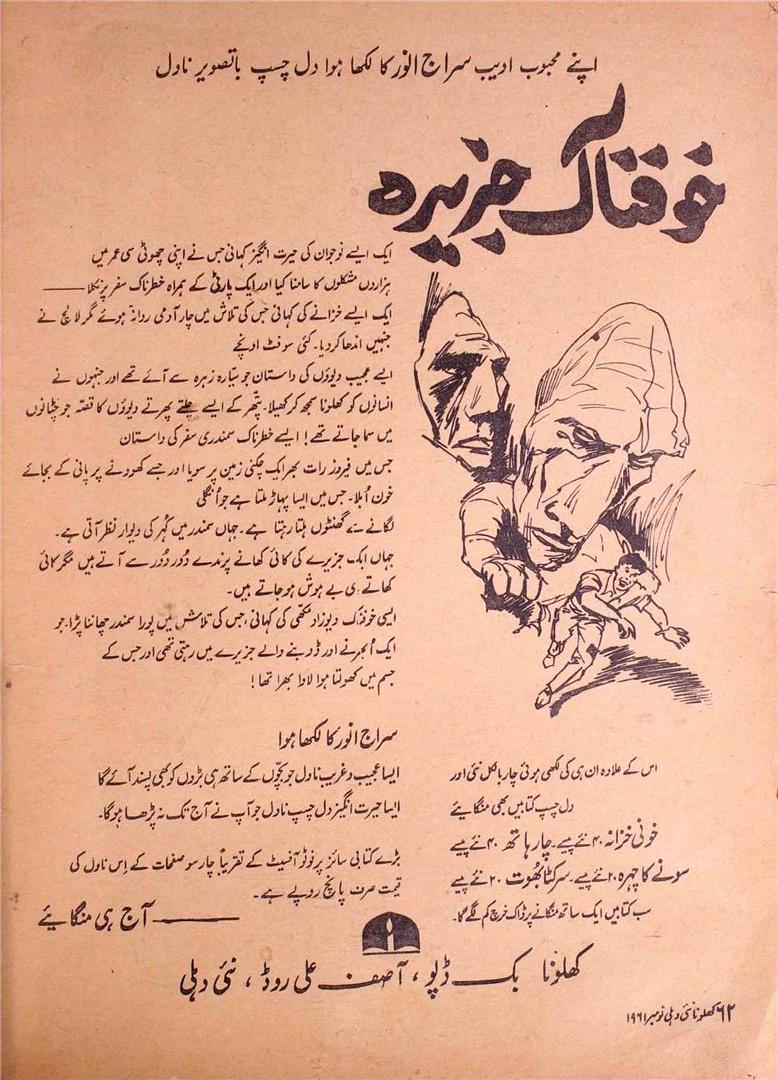 اپنے محبوب ادیب سراج انور کا لکھا ہوا دل چسپ باتصویر ناول
خوفناک جزیرہ
ایک ایسے نوجوان کی حیرت انگیز کہانی جس نے اپنی چھوٹی سی عمر میں
ہزاروں مشکلوں کا سامنا کیا اور ایک پارٹی کے ہمراہ خطرناک سفر پر نکلا ——
ایک ایسے خزانے کی کہانی جس کی تلاش میں چار آدمی روانہ ہوئے مگر لالچ نے
جنہیں اندھا کر دیا۔ کئی سو فٹ اونچے
ایسے عجیب دیوؤں کی داستان جو سیّارہ زہرہ سے آئے تھے اور جنہوں نے
انسانوں کو کھلونا سمجھ کر کھیلا۔ پتّھر کے ایسے چلتے پھرتے دیوؤں کا قصّہ جو چٹانوں
میں سما جاتے تھے! ایسے خطرناک سمندری سفر کی داستان
جس میں فیروز رات بھر ایک چکنی زمین پر سویا اور جسے کھودنے پر پانی کے بجائے
خون اُبلا۔ جس میں ایسا پہاڑ ملتا ہے جو اُنگلی
لگانے سے گھنٹوں ہلتا رہتا ہے۔ جہاں سمندر میں کُہر کی دیوار نظر آتی ہے۔
جہاں ایک جزیرے کی کائی کھانے پرندے دُور دُور سے آتے ہیں مگر کائی
کھاتے ہی بے ہوش ہو جاتے ہیں۔
ایسی خوفناک دیوزاد مکھّی کی کہانی، جس کی تلاش میں پورا سمندر چھاننا پڑا۔ جو
ایک اُبھرنے اور ڈوبنے والے جزیرے میں رہتی تھی اور جس کے
جسم میں کھولتا ہوا لاوا بھرا تھا!
سراج انور کا لکھا ہوا
ایسا عجیب و غریب ناول جو بچّوں کے ساتھ ہی بڑوں کو بھی پسند آئے گا
ایسا حیرت انگیز دل چسپ ناول جو آپ نے آج تک نہ پڑھا ہوگا۔
بڑے کتابی سائز پر فوٹو آفسیٹ کے تقریباً چار سو صفحات کے اِس ناول کی
قیمت صرف پانچ روپے ہے۔
—— آج ہی منگائیے
اس کے علاوہ ان ہی کی لکھی ہوئی چار بالکل نئی اور
دل چسپ کتابیں بھی منگائیے
خونی خزانہ ۴۰ نئے پیسے۔ چار ہاتھ ۴۰ نئے پیسے
سونے کا چہرہ ۲۰ نئے پیسے۔ سرکٹا بھُوت ۲۰ نئے پیسے
سب کتابیں ایک ساتھ منگانے پر ڈاک خرچ کم لگے گا۔
کھلونا بک ڈپو، آصف علی روڈ، نئی دہلی
۶۲ کھلونا نئی دہلی نومبر ۱۹۶۱